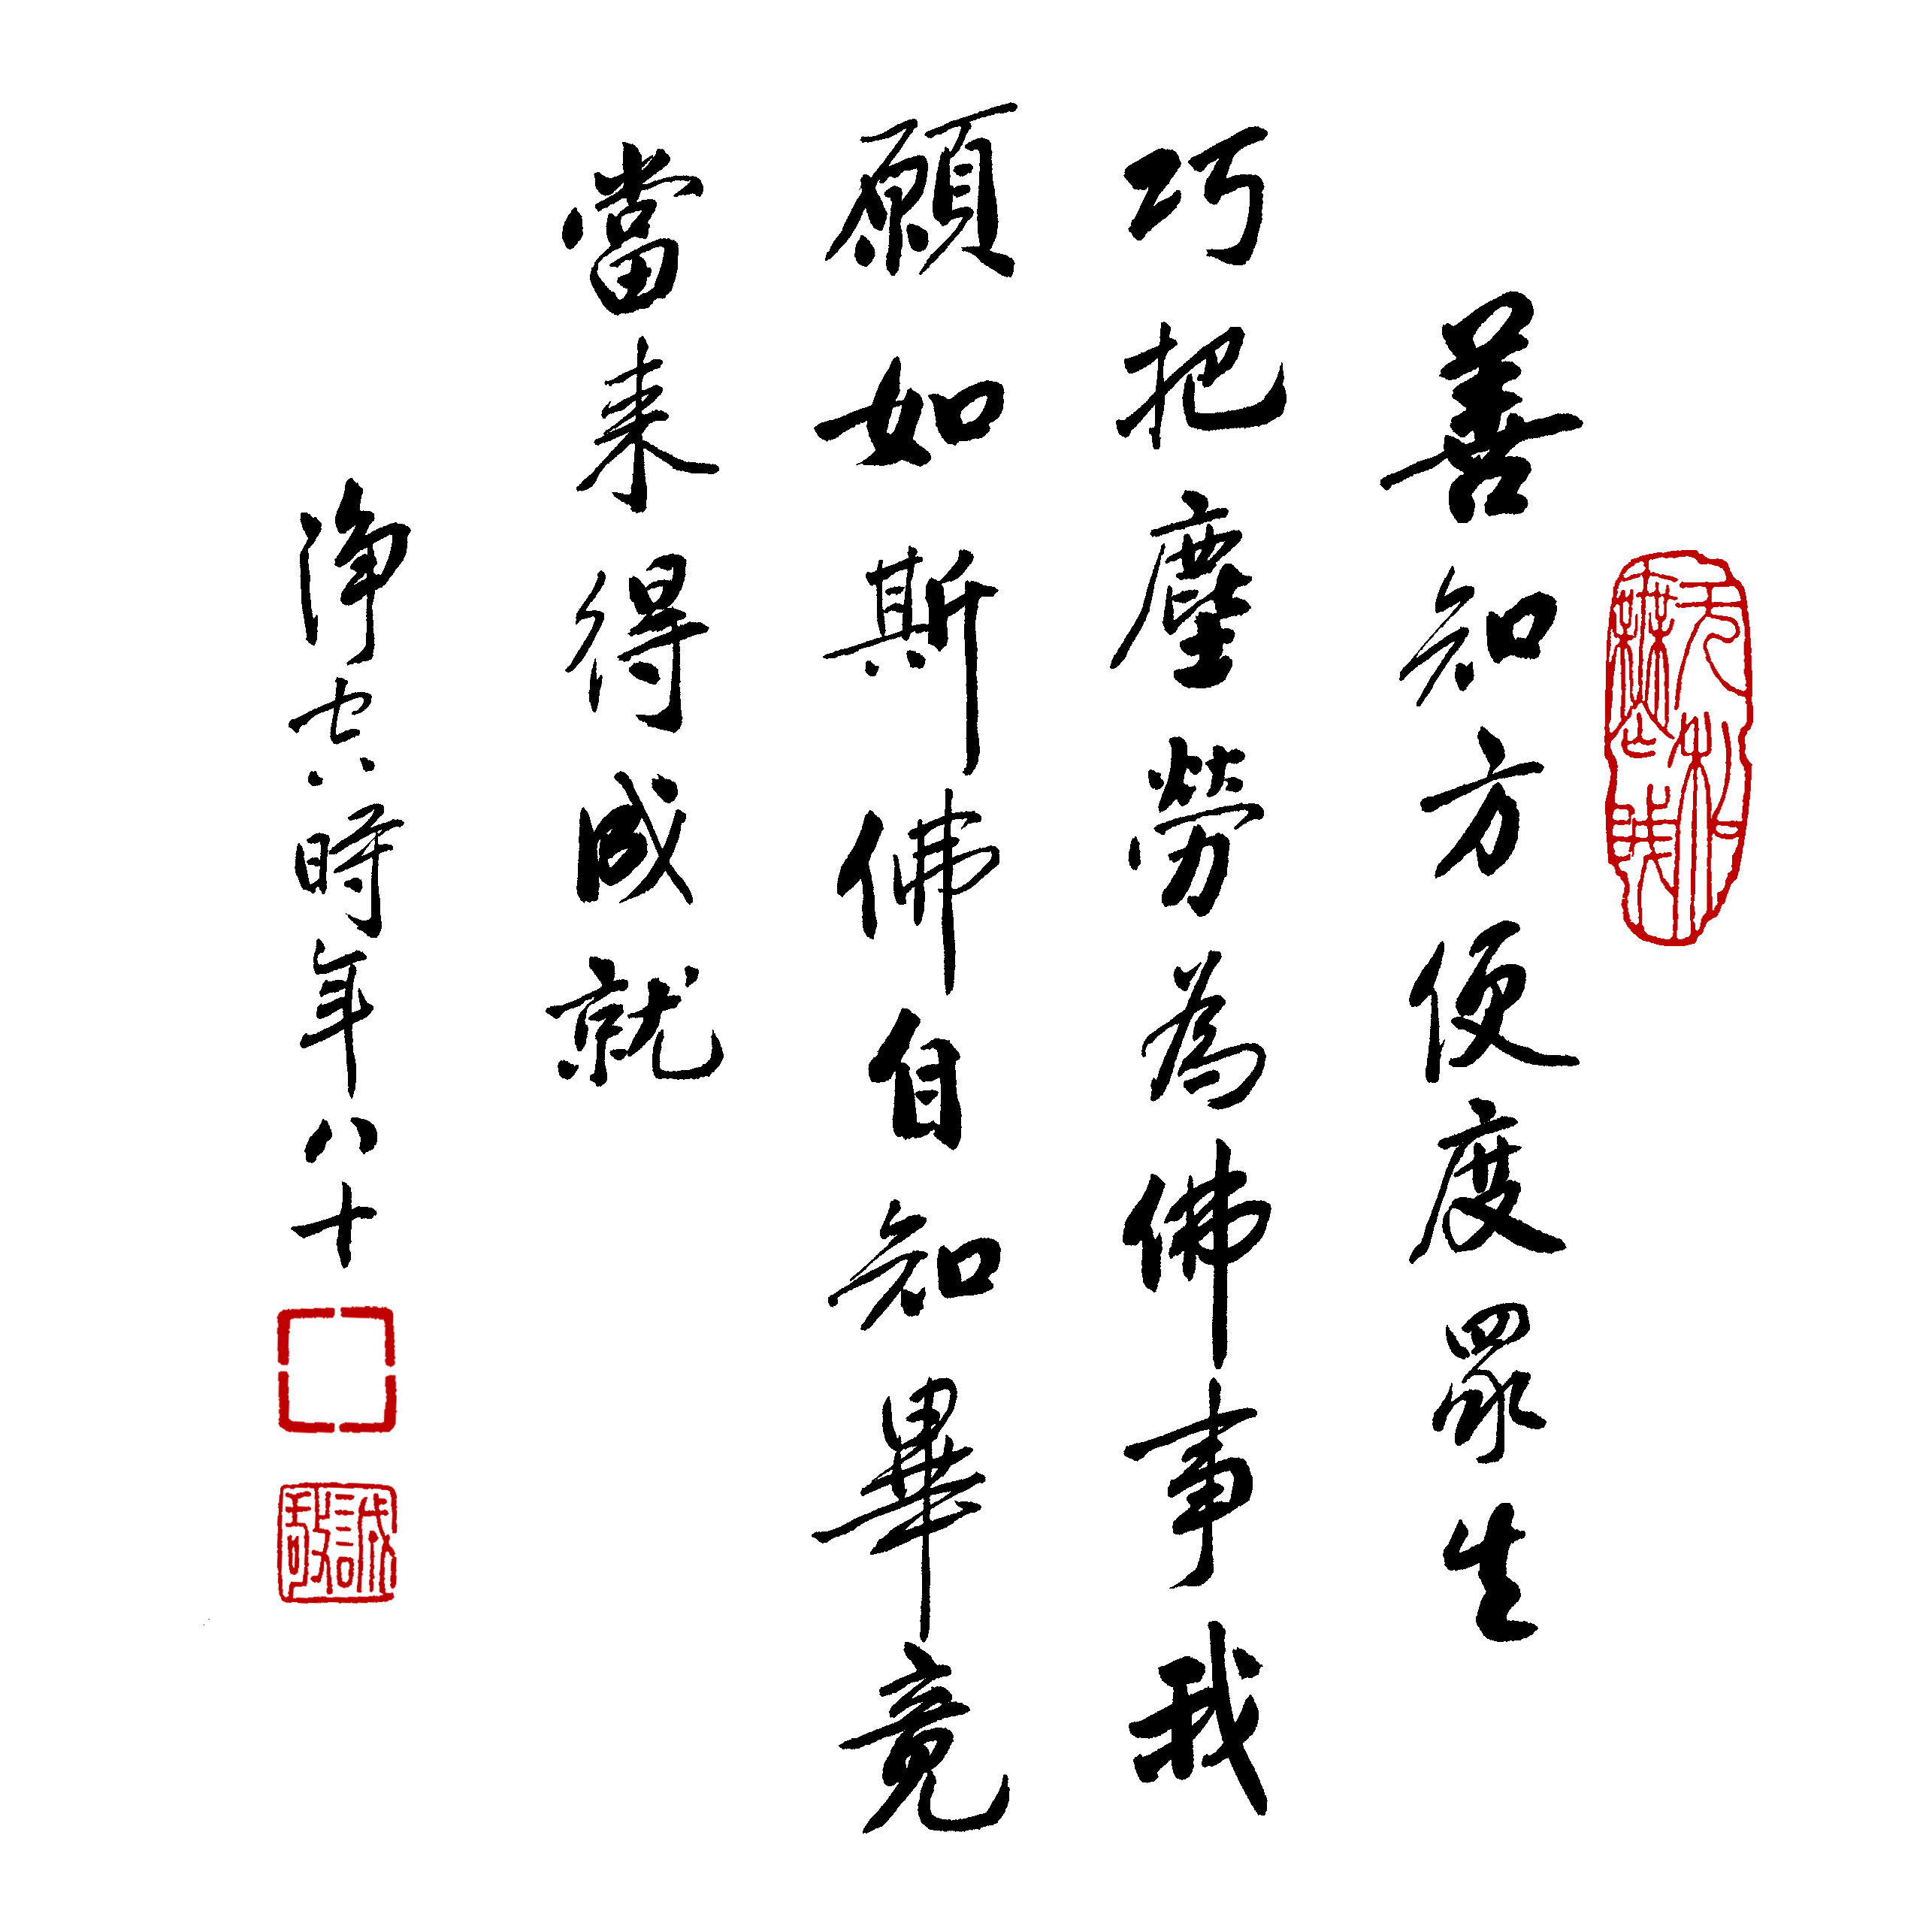 善知方便度眾生
巧把塵勞為佛事我
願如斯佛自知畢竟
當來得成就
淨空時年八十